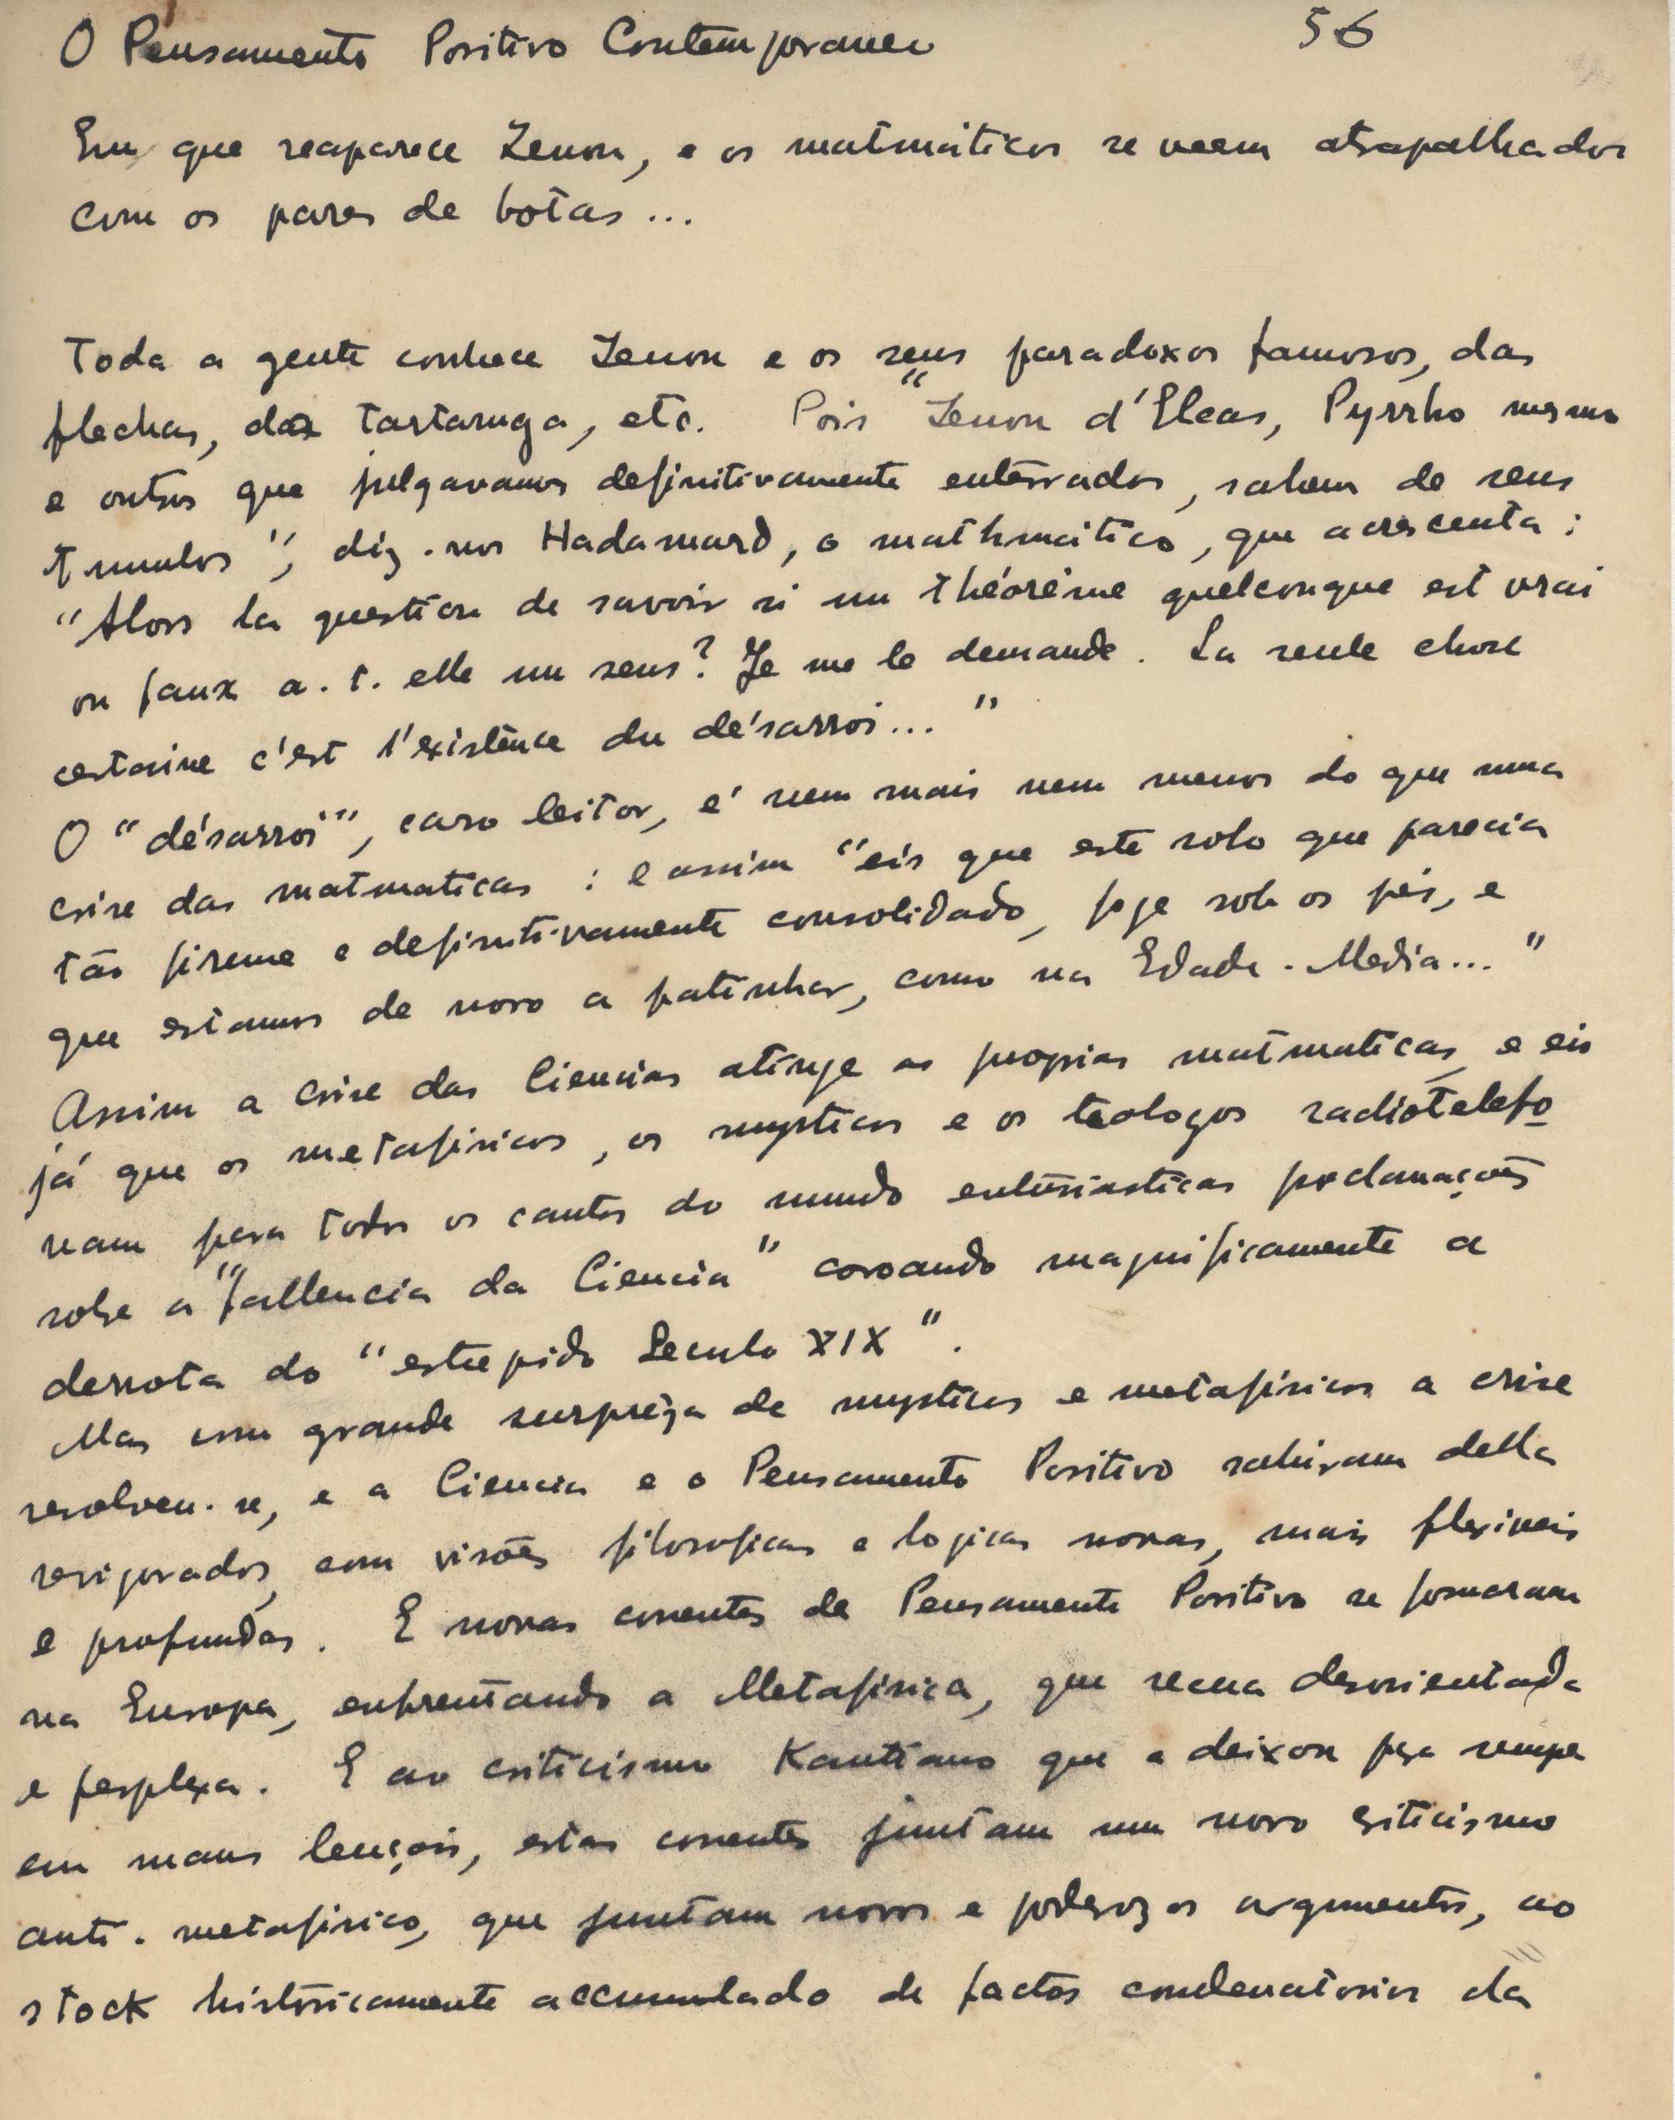 O Pensamento Positivo Contemporaneo 56
Em que reaparece Zenon, e os matmáticos se veem atrapalhados
com os pares de botas...
Toda a gente conhece Zenon e os seus paradoxos famosos, das
flechas, da tartaruga, etc. Pois "Zenon d'Eleas, Pyrrho mesmo
e outros que julgavamos definitivamente enterrados, sahem de seus
tumulos", diz-nos Hadamard, o mathmático, que acrescenta:
"Alors la question de savoir si un théorème quelconque est vrai
ou faux a-t-elle un sens? Je me le demande. La seule chose
certaine c'est l'existence du désarroi..."
O "désarroi", caro leitor, é nem mais nem menos do que uma
crise das matmaticas: e assim "eis que este solo que parecia
tão firme e definitivamente consolidado, foge sob os pés, e
que estamos de novo a patinhar, como na Edade-Media..."
Assim a crise das Ciencias atinge as proprias matmaticas, e eis
já que os metafisicos, os mysticos e os teologos radiotelefo
nam para todos os cantos do mundo entusiasticas proclamações
sobre a "fallencia da Ciencia" coroando magnificamente a
derrota do "estupido Seculo XIX".
Mas com grande surpreza de mysticos e metafisicos a crise
resolveu-se, e a Ciencia e o Pensamento Positivo sahiram della
revigorados, com visões filosoficas e logicas novas, mais flexiveis
e profundas. E novas correntes de Pensamento Positivo se formaram
na Europa, enfrentando a Metafisica, que recua desorientada
e perplexa. E ao criticismo Kantiano que a deixou pra sempre
em maus lençois, estas correntes juntam um novo criticismo
anti-metafisico, que juntam novos e poderozos argumentos, ao
stock historicamente accumulado de factos condenatorios da